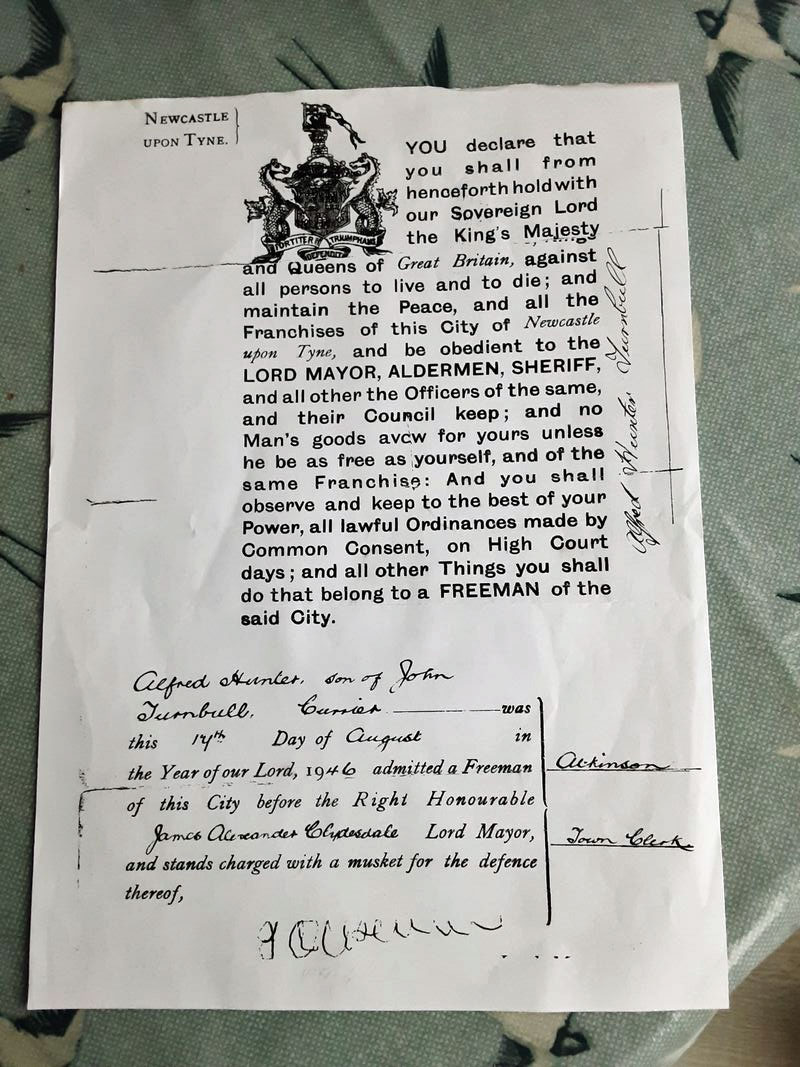 NEWCASTLE
UPON TYNE.
FORTITER TRIUMPHANS
DEFENDIT
YOU declare that
you shall from
henceforth hold with
our Sovereign Lord
the King's Majesty
and Queens of Great Britain, against
all persons to live and to die; and
maintain the Peace, and all the
Franchises of this City of Newcastle
upon Tyne, and be obedient to the
LORD MAYOR, ALDERMEN, SHERIFF,
and all other the Officers of the same,
and their Council keep; and no
Man's goods avow for yours unless
he be as free as yourself, and of the
same Franchise: And you shall
observe and keep to the best of your
Power, all lawful Ordinances made by
Common Consent, on High Court
days; and all other Things you shall
do that belong to a FREEMAN of the
said City.
Alfred Hunter Turnbull
Alfred Hunter, son of John
Turnbull, Currier was
this 14th Day of August in
the Year of our Lord, 1946 admitted a Freeman
of this City before the Right Honourable
James Alexander Clydesdale Lord Mayor,
and stands charged with a musket for the defence
thereof,
Atkinson
Town Clerk